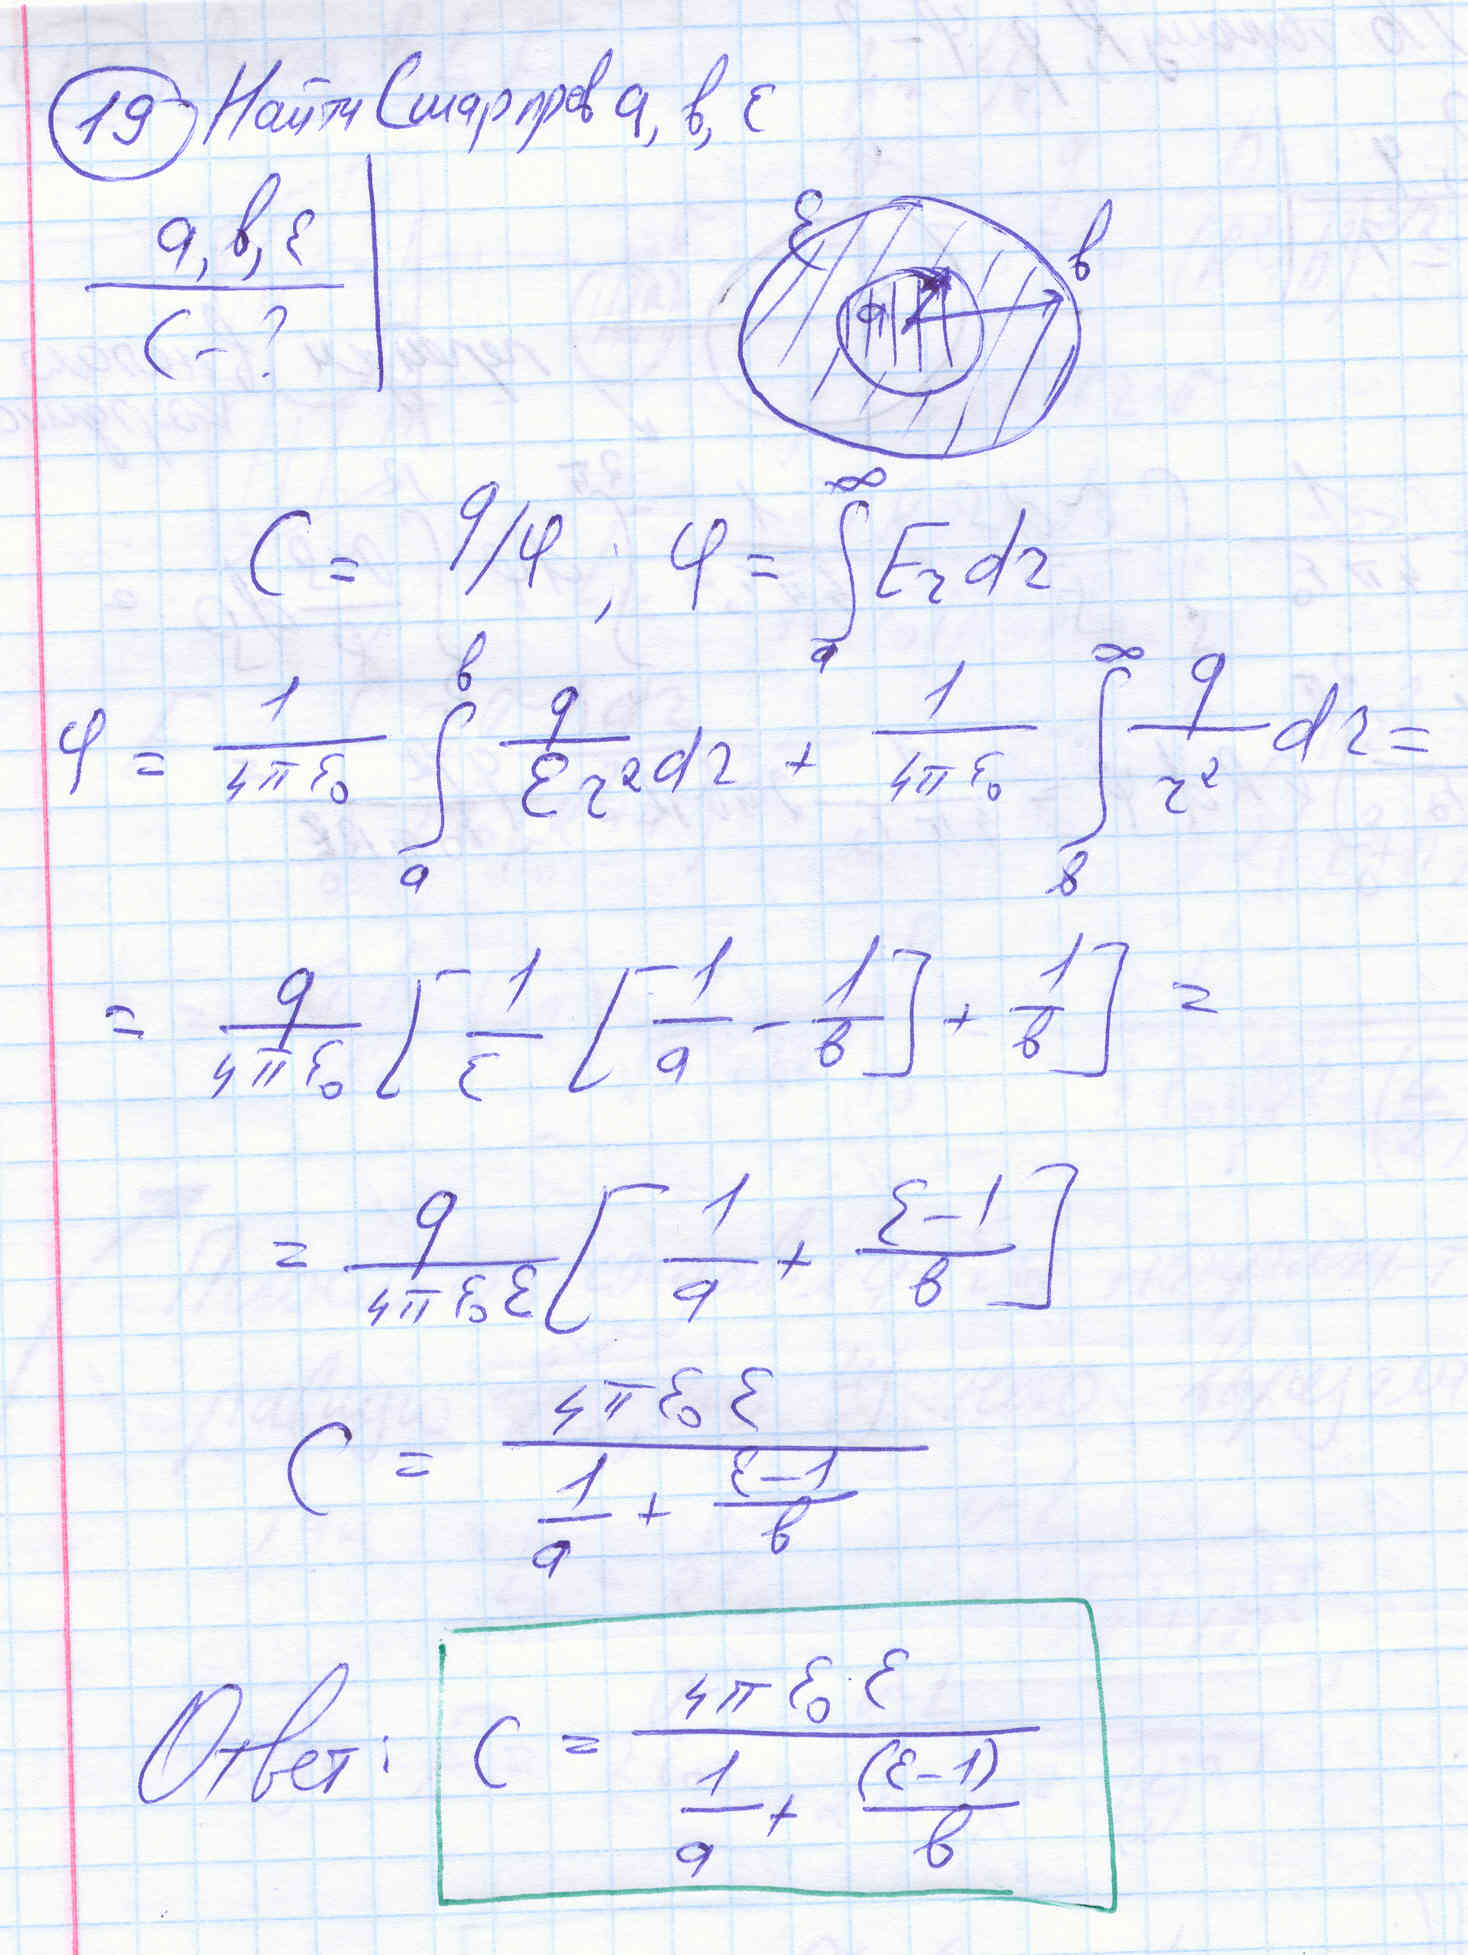 19 Найти C шар пров a, b, ε
a, b, ε
C - ?
ε b
a
C = q/φ ; φ = ∫ₐ^∞ Eᵣ dr
φ = 1/(4πε₀) ∫ₐ^b q/(εr²) dr + 1/(4πε₀) ∫_b^∞ q/r² dr =
= q/(4πε₀) [ 1/ε [ 1/a - 1/b ] + 1/b ] =
= q/(4πε₀ε) [ 1/a + (ε-1)/b ]
C = 4πε₀ε / (1/a + (ε-1)/b)
Ответ: C = 4πε₀ε / (1/a + (ε-1)/b)